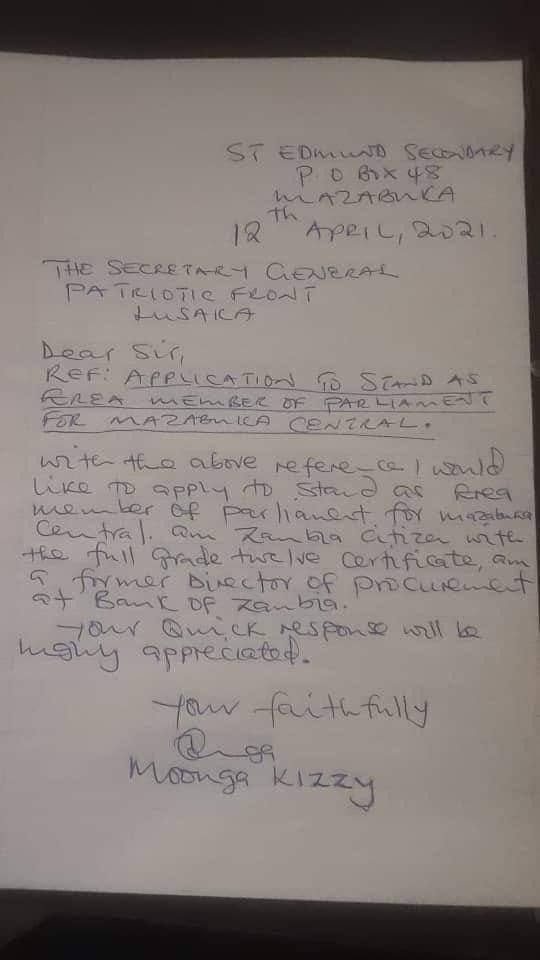 ST EDMUND SECONDARY
P. O BOX 48
MAZABUKA
12th APRIL, 2021.
THE SECRETARY GENERAL
PATRIOTIC FRONT
LUSAKA
Dear Sir,
REF: APPLICATION TO STAND AS
AREA MEMBER OF PARLIAMENT
FOR MAZABUKA CENTRAL.
with the above reference I would
like to apply to stand as Area
member of parliament for mazabuka
Central. am Zambia citizen with
the full grade twelve certificate, am
a former Director of procurement
at Bank OF Zambia.
your Quick response will be
highly appreciated.
your faithfully
Moonga Kizzy